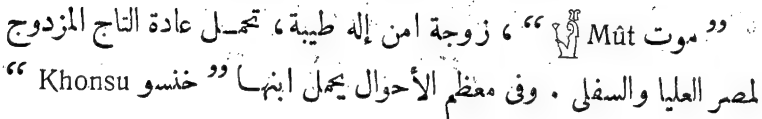 ”موت Mût “، زوجة امن إله طيبة، تحمل عادة التاج المزدوج
لمصر العليا والسفلى . وفى معظم الأحوال يحمل ابنها ”خنسو Khonsu “